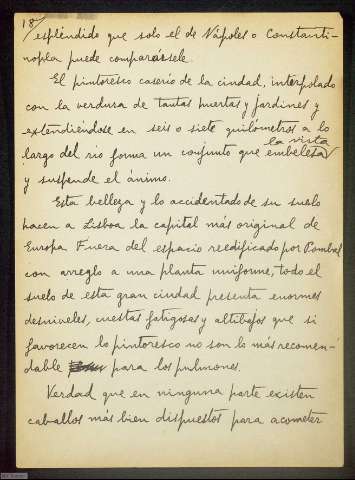 18/
espléndido que solo el de Nápoles o Constanti-
nopla puede comparársele.
El pintoresco caserío de la ciudad, interpolado
con la verdura de tantas huertas y jardines y
extendiéndose en seis o siete quilómetros a lo
la vista
largo del rio forma un conjunto que embelesa
y suspende el ánimo.
Esta belleza y lo accidentado de su suelo
hacen a Lisboa la capital más original de
Europa Fuera del espacio reedificado por Pombal
con arreglo a una planta uniforme, todo el
suelo de esta gran ciudad presenta enormes
desniveles, cuestas fatigosas y altibajos que si
favorecen lo pintoresco no son lo más recomen-
dable para los pulmones.
Verdad que en ninguna parte existen
caballos más bien dispuestos para acometer